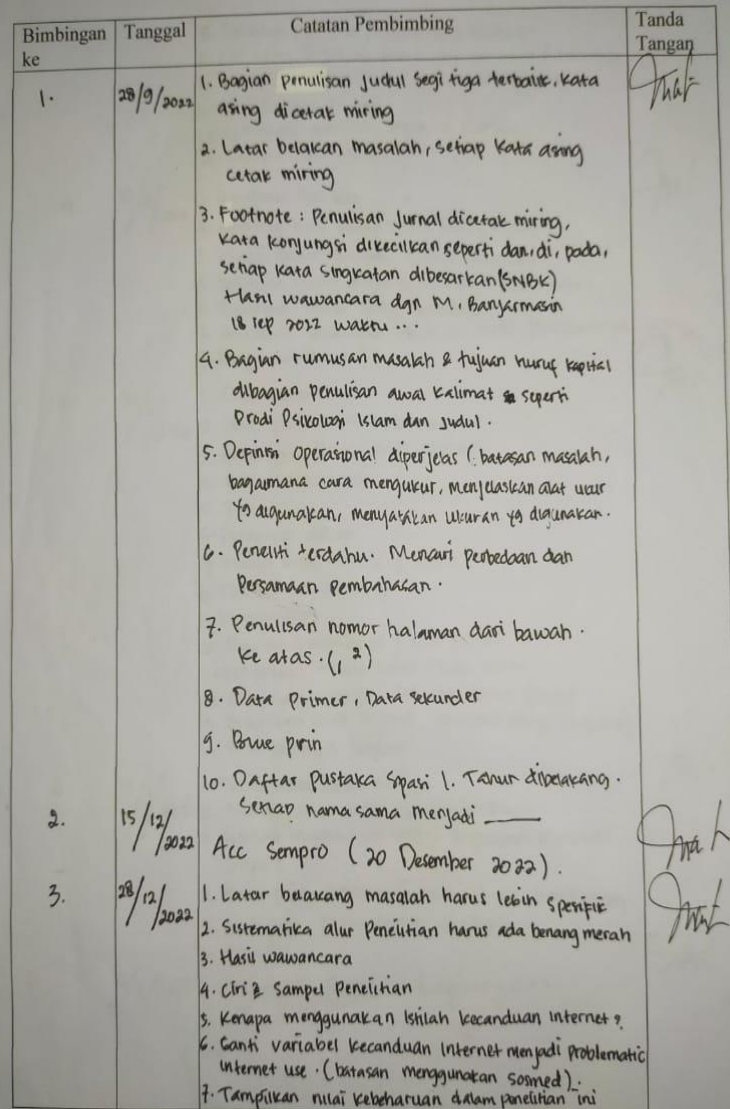 Bimbingan ke
Tanggal
Catatan Pembimbing
Tanda Tangan
1.
28/9/2022
1. Bagian penulisan Judul segi tiga terbalik. Kata
asing dicetak miring
2. Latar belakan masalah, setiap kata asing
cetak miring
3. Footnote : Penulisan Jurnal dicetak miring,
kata konjungsi dikecilkan seperti dan, di, pada,
setiap kata singkatan dibesarkan (SNBK)
Hasil wawancara dgn M. Banjarmasin
18 sep 2022 waktu ...
4. Bagian rumusan masalah & tujuan huruf kapital
dibagian penulisan awal kalimat seperti
Prodi Psikologi Islam dan Judul.
5. Definisi Operasional diperjelas (batasan masalah,
bagaimana cara mengukur, menjelaskan alat ukur
yg digunakan, menyatakan ukuran yg digunakan.
6. Peneliti terdahu. Mencari perbedaan dan
Persamaan Pembahasan.
7. Penulisan nomor halaman dari bawah.
ke atas. (1, 2)
8. Data Primer, Data sekunder
9. Blue prin
10. Daftar pustaka spasi 1. Tahun dibelakang.
Setiap nama sama menjadi ____
2.
15/12/2022
Acc Sempro (20 Desember 2022).
3.
28/12/2022
1. Latar belakang masalah harus lebih spesifik
2. Sistematika alur Penelitian harus ada benang merah
3. Hasil wawancara
4. Ciri2 Sampel Penelitian
5. Kenapa menggunakan Istilah kecanduan internet?
6. Ganti variabel kecanduan Internet menjadi Problematic
internet use. (batasan menggunakan sosmed).
7. Tampilkan nilai kebeharuan dalam penelitian ini